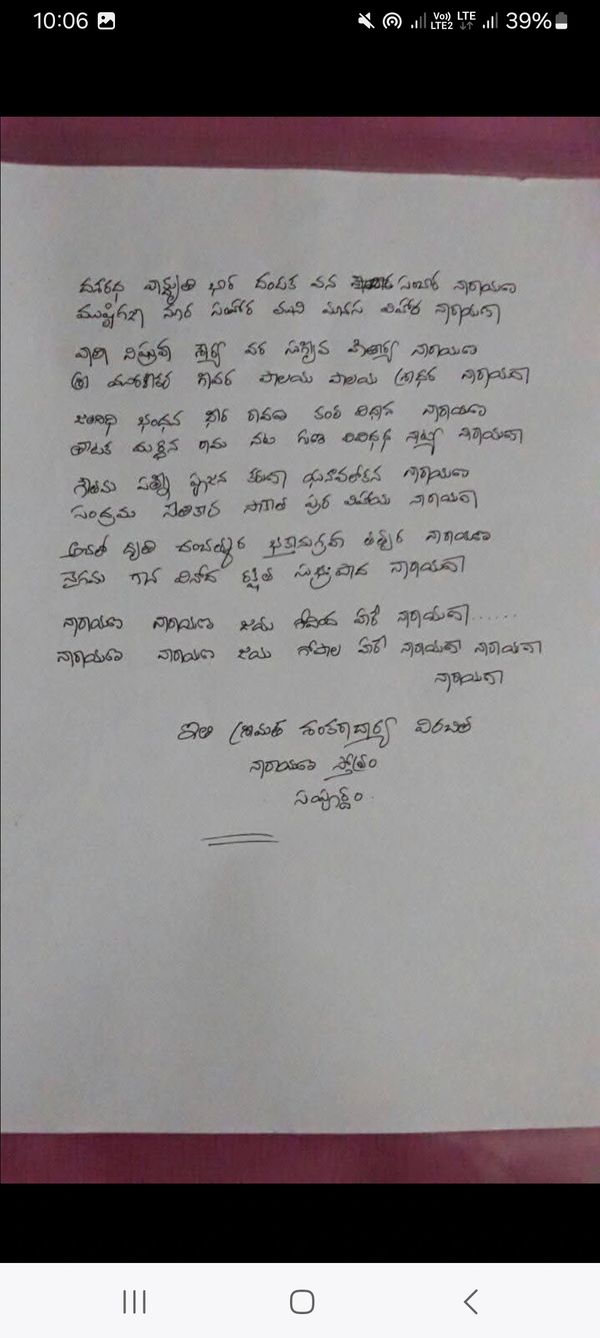 10:06
Vo)) LTE
LTE2
39%
దశరథ వాగ్ధృతి భార దండక వన సంహార నారాయణ
ముష్టిక చాణూర సంహార ముని మానస విహార నారాయణా
వాలి నిగ్రహ శౌర్య వర సుగ్రీవ హితార్య నారాయణ
శ్రీ మురళీకర ధీవర పాలయ పాలయ శ్రీధర నారాయణా
జలనిధి బంధన ధీర రావణ కంఠ విదార నారాయణ
తాటక మర్దన రామ నట గుణ వివిధ నారాయణా
గౌతమ పత్నీ పూజన కరుణా ఘనావలోకన నారాయణ
సంభ్రమ సీతాకార సాకేత పుర విహార నారాయణా
అచలో ధృతి చంచత్కర భక్తానుగ్రహ తత్పర నారాయణ
నైగమ గాన వినోద రక్షిత సుప్రహ్లాద నారాయణా
నారాయణ నారాయణ జయ గోవింద హరే నారాయణా......
నారాయణ నారాయణ జయ గోపాల హరే నారాయణా నారాయణా
నారాయణా
ఇతి శ్రీమత శంకరాచార్య విరచిత
నారాయణ స్తోత్రం
సంపూర్ణం.